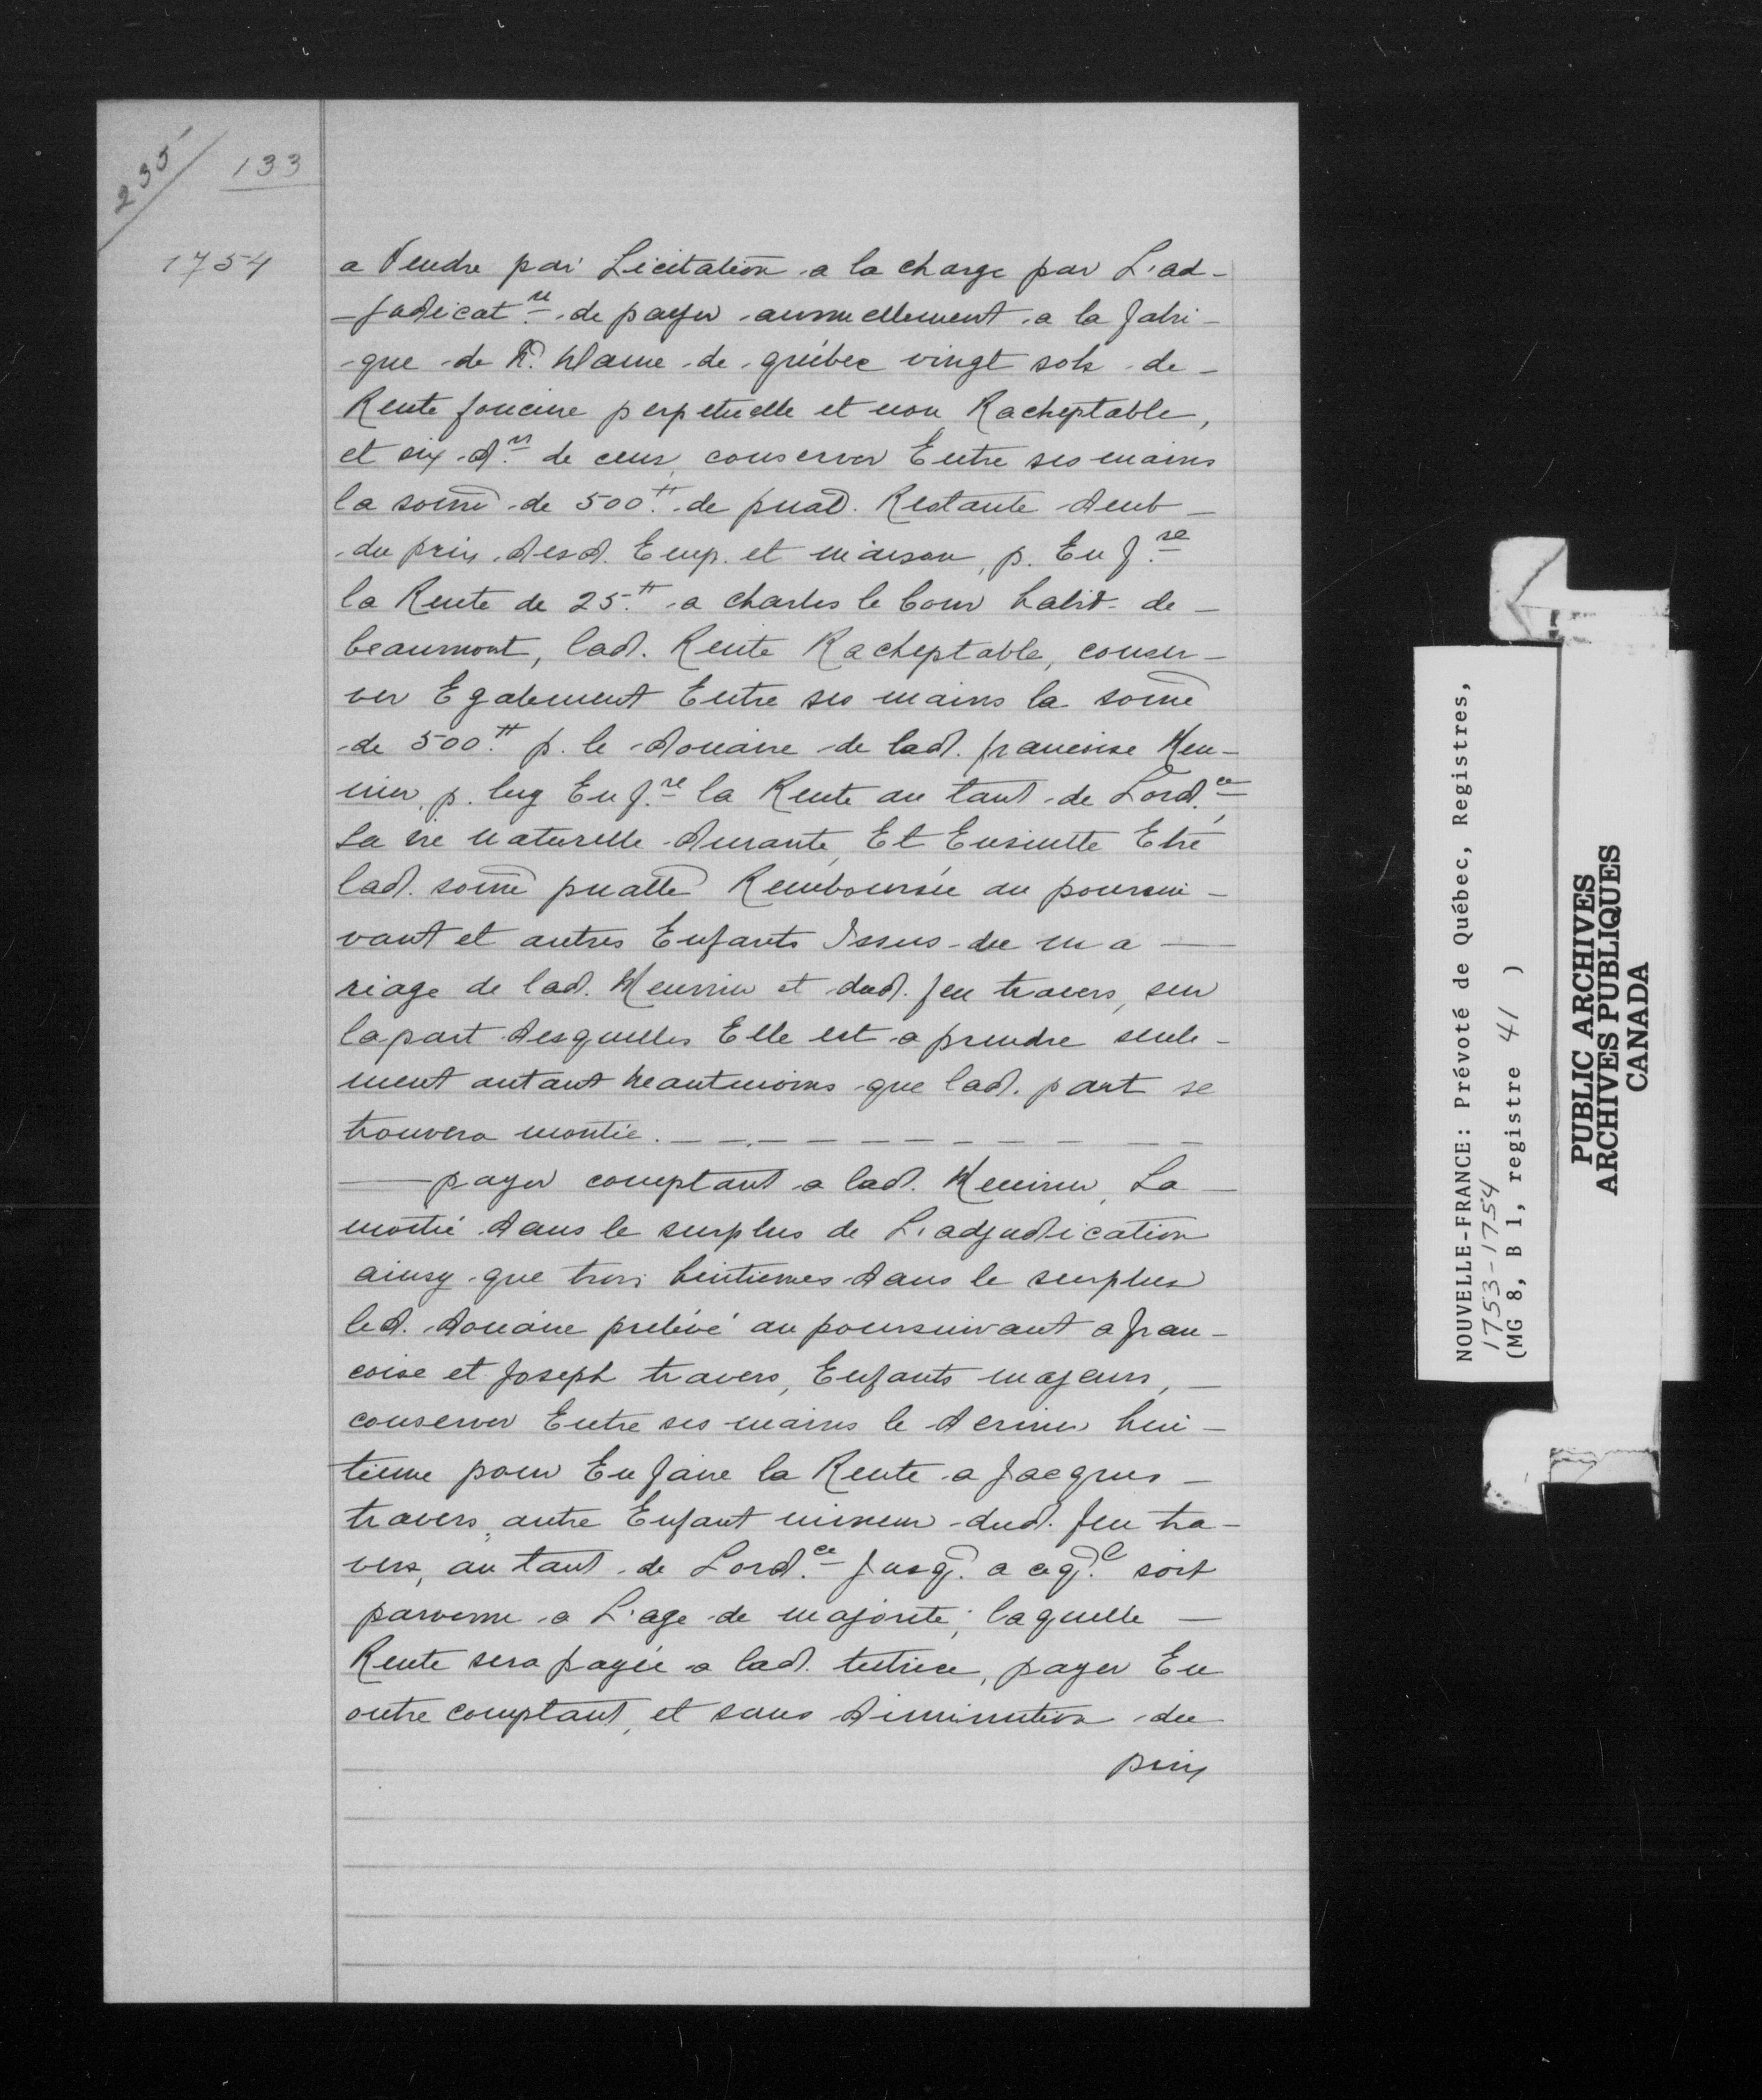 235
133
1754
a Vendre par Licitation a la charge par L'ad-
-judicat.re de payer annuellement a la fabri-
-que de N. Dame de québec vingt sols de-
Rente fonciere perpetuelle et non Racheptable,
et six d.rs de cens, conserver Entre ses mains
la som̃e de 500.tt de pnal. Restante deub-
du prix desd. Emp. et maison, p. En f.re
la Rente de 25.tt a charles le Cour habit. de-
beaumont, lad. Rente Racheptable, conser-
ver Egalement Entre ses mains la som̃e
de 500.tt p. le douaire de lad. francoise Meu-
nier, p. luy En f.re la Rente au taux de Lord.ce,
sa vie naturelle durante, Et Ensuitte Etre
lad. som̃e pnalle Remboursée au poursui-
vant et autres Enfants Issus du ma-
riage de lad. Meunier et dud. feu travers, sur
la part desquelles Elle est a prendre seule-
ment autant neantmoins que lad. part se
trouvera montée.
payer comptant a lad. Meunier, La
moitié dans le surplus de L'adjudication
ainsy que trois huitiemes dans le surplus
led. douaire prélevé au poursuivant a fran-
coise et Joseph travers, Enfants majeurs,
conserver Entre ses mains le dernier hui-
tieme pour En faire la Rente a Jacques-
travers, autre Enfant mineur dud. feu tra-
vers, au taux de Lord.ce Jusq. a ceq.l soit
parvenu a L'age de majorité; laquelle
Rente sera payée a lad. tutrice, payer En
outre comptant, et sans diminution du
prix
NOUVELLE-FRANCE: Prévoté de Québec, Registres,
1753-1754
(MG 8, B 1, registre 41 )
PUBLIC ARCHIVES
ARCHIVES PUBLIQUES
CANADA